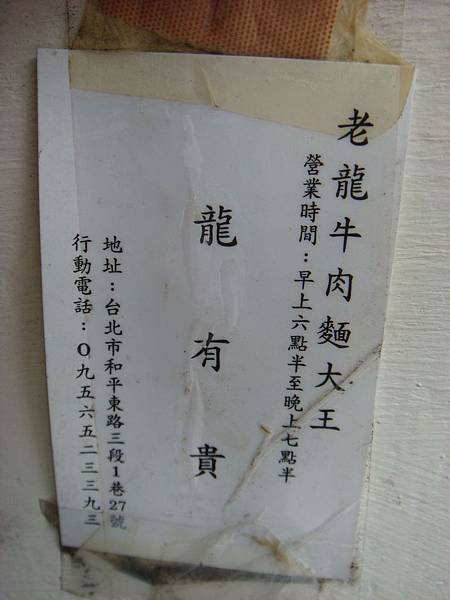 老龍牛肉麵大王
營業時間：早上六點半至晚上七點半
龍有貴
地址：台北市和平東路三段1巷27號
行動電話：０九五六五二三三九三